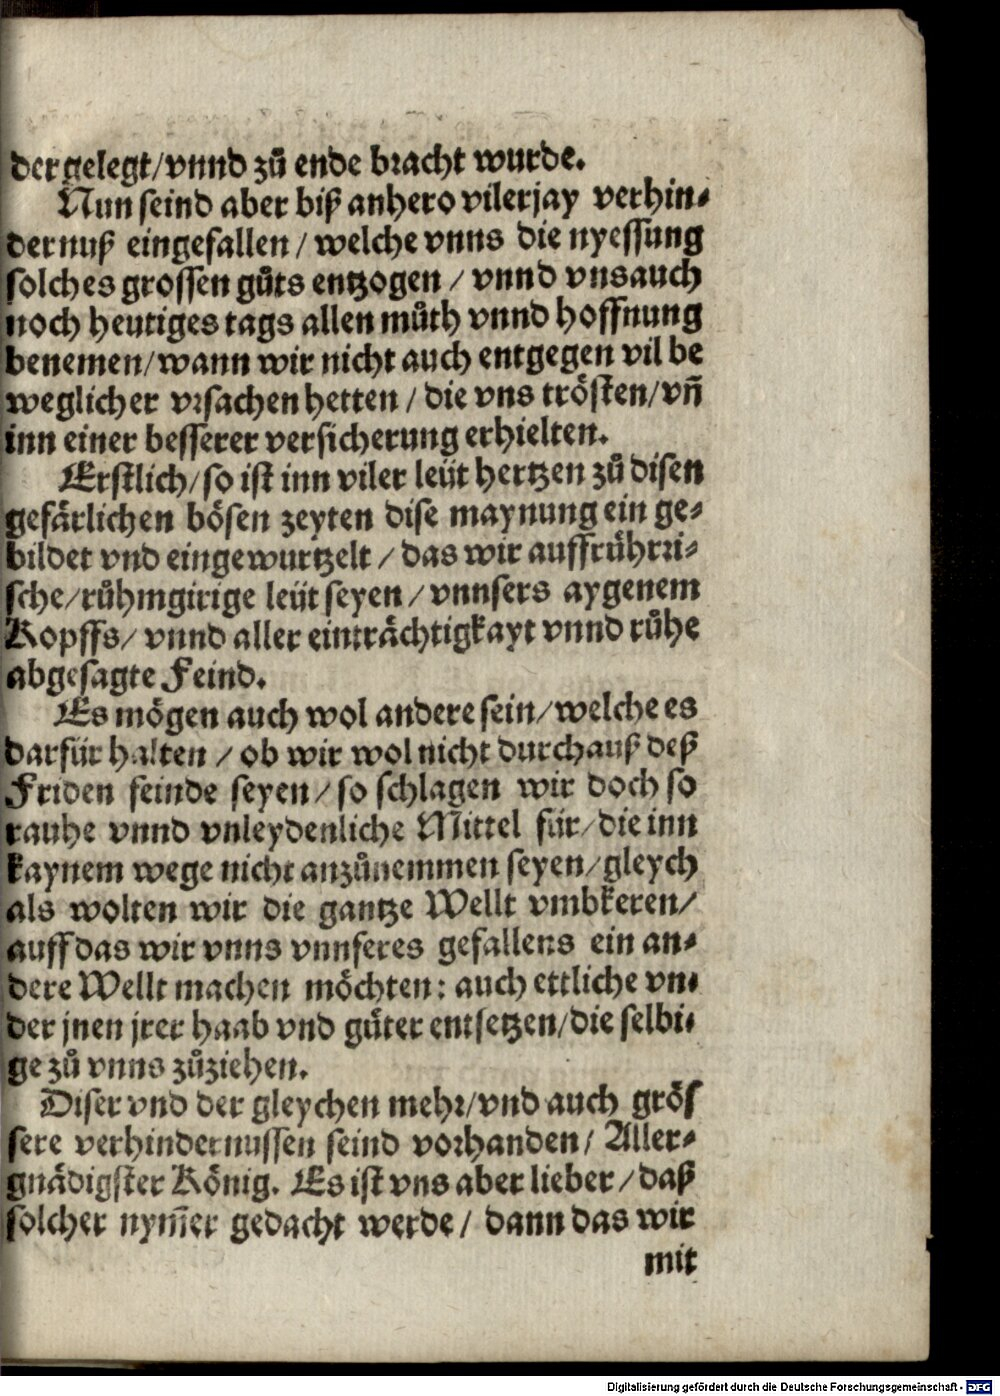 der gelegt/vnnd zů ende bracht wurde.
Nun seind aber biß anhero vilerjay verhin⸗
dernuß eingefallen / welche vnns die nyessung
solches grossen gůts entzogen / vnnd vns auch
noch heutiges tags allen můth vnnd hoffnung
benemen/wann wir nicht auch entgegen vil be
weglicher vrsachen hetten / die vns trösten/vñ
inn einer besserer versicherung erhielten.
Erstlich/so ist inn viler leüt hertzen zů disen
gefärlichen bösen zeyten dise maynung ein ge⸗
bildet vnd eingewurtzelt / das wir auffrührri⸗
sche/růhmgirige leüt seyen / vnnsers aygenem
Kopffs/ vnnd aller einträchtigkayt vnnd růhe
abgesagte Feind.
Es mögen auch wol andere sein/welche es
darfür halten / ob wir wol nicht durchauß deß
Friden feinde seyen/so schlagen wir doch so
rauhe vnnd vnleydenliche Mittel für/die inn
kaynem wege nicht anzůnemmen seyen/gleych
als wolten wir die gantze Wellt vmbkeren/
auff das wir vnns vnnseres gefallens ein an⸗
dere Wellt machen möchten: auch ettliche vn⸗
der jnen jrer haab vnd güter entsetzen/die selbi⸗
ge zů vnns zůziehen.
Diser vnd der gleychen mehr/vnd auch grös
sere verhindernussen seind vorhanden/ Aller⸗
gnädigster König. Es ist vns aber lieber / daß
solcher nym̃er gedacht werde / dann das wir
mit
Digitalisierung gefördert durch die Deutsche Forschungsgemeinschaft - DFG